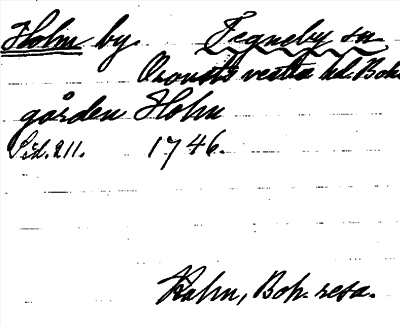 Holm by. Tegneby sn
Orousts vestra hd. Boh.
gården Holm
Sid. 211. 1746.
Kalm, Boh. resa.